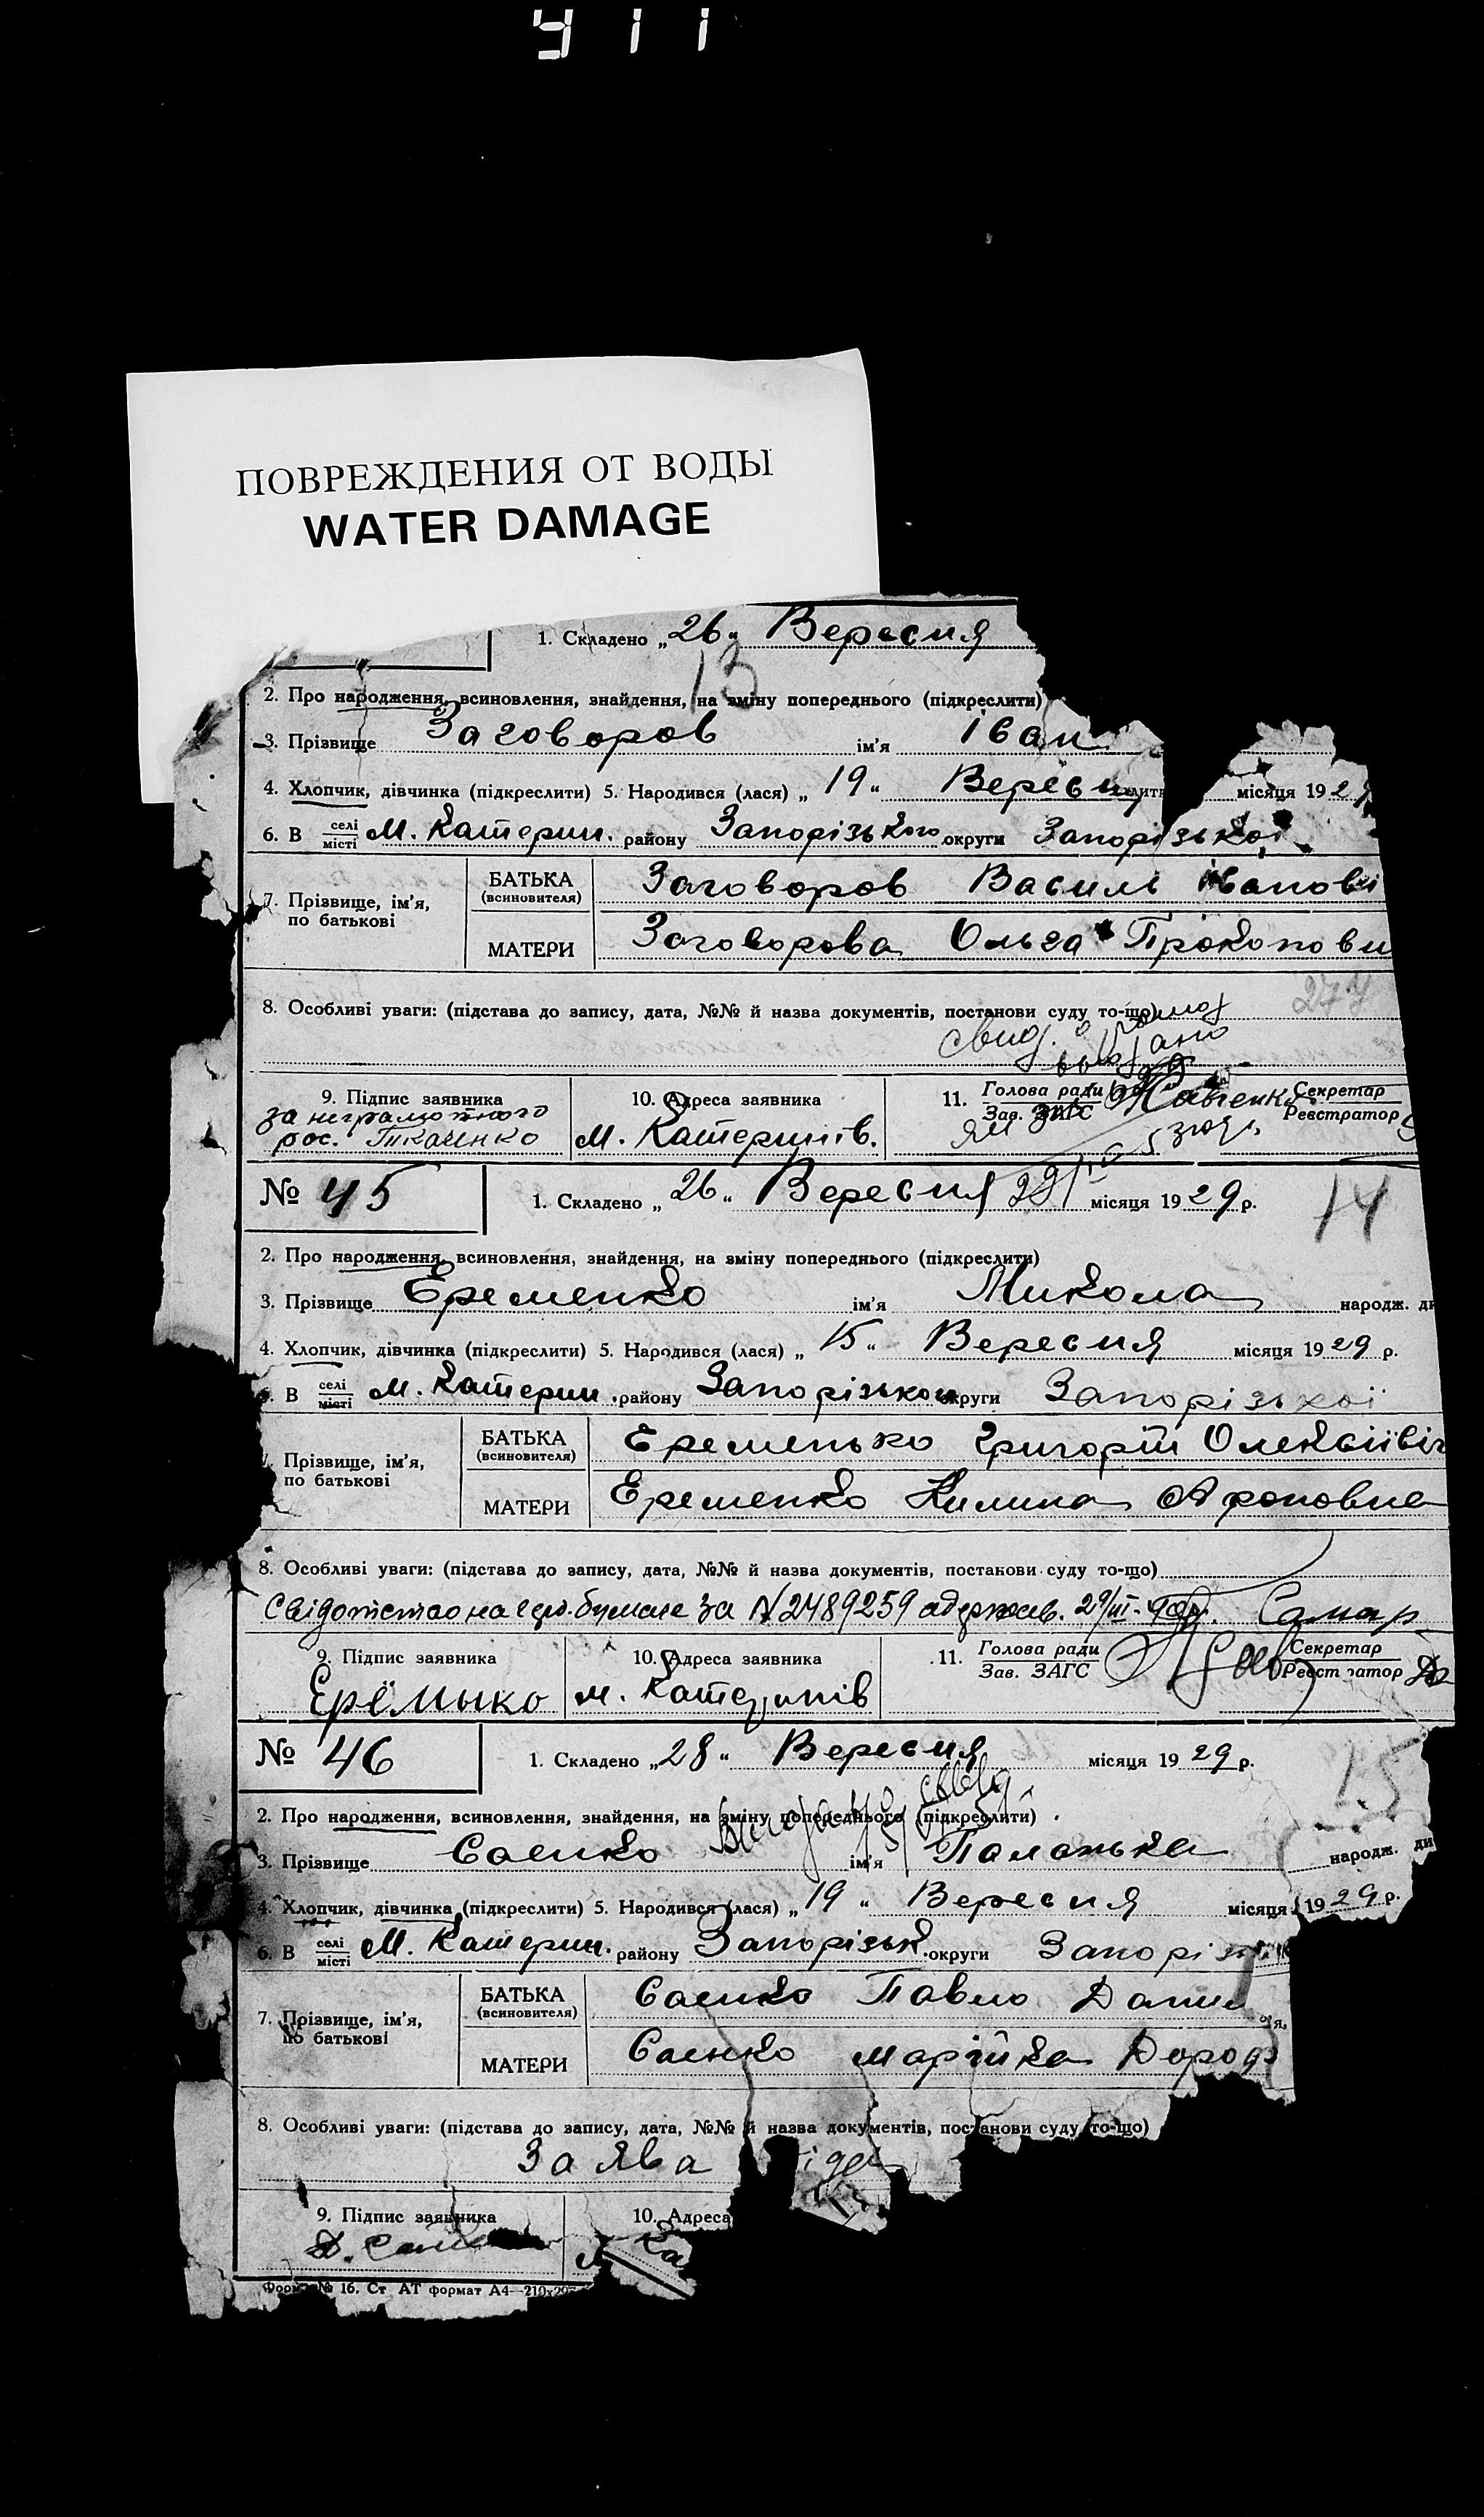 911
ПОВРЕЖДЕНИЯ ОТ ВОДЫ
WATER DAMAGE
1. Складено „26“ Вересня
13
2. Про народження, всиновлення, знайдення, на зміну попереднього (підкреслити)
3. Прізвище Заговоров ім'я Іван
4. Хлопчик, дівчинка (підкреслити) 5. Народився (лася) „19“ Вересня місяця 192
6. В селі місті М. Катерин. району Запорізького округи Запорізької
7. Прізвище, ім'я, по батькові
БАТЬКА (всиновителя) Заговоров Василь Іванові
МАТЕРИ Заговорова Ольга Прокопови
8. Особливі уваги: (підстава до запису, дата, №№ й назва документів, постанови суду то-що)
277
свид.
9. Підпис заявника 10. Адреса заявника 11. Голова ради Зав. ЗАГС Секретар Реєстратор
за неграмотного
рос. Ткаченко М. Катеринів.
№ 45 1. Складено „26“ Вересня місяця 1929 р.
14
2. Про народження, всиновлення, знайдення, на зміну попереднього (підкреслити)
3. Прізвище Еременко ім'я Микола народж. ди
4. Хлопчик, дівчинка (підкреслити) 5. Народився (лася) „15“ Вересня місяця 1929 р.
6. В селі місті М. Катерин. району Запорізьког округи Запорізької
Прізвище, ім'я, по батькові
БАТЬКА (всиновителя) Еременько Григорій Олексіївіч
МАТЕРИ Еременко Килина
8. Особливі уваги: (підстава до запису, дата, №№ й назва документів, постанови суду то-що)
за N 2489259 29/III-
9. Підпис заявника 10. Адреса заявника 11. Голова ради Зав. ЗАГС Секретар Реєстратор
Ерёмыко м. Катеринів
№ 46 1. Складено „28“ Вересня місяця 1929 р.
15
2. Про народження, всиновлення, знайдення, на зміну попереднього (підкреслити)
3. Прізвище Саенко ім'я Паланька народж. ди
4. Хлопчик, дівчинка (підкреслити) 5. Народився (лася) „19“ Вересня місяця 1929 р.
6. В селі місті М. Катерин. району Запорізьк. округи Запорі
7. Прізвище, ім'я, по батькові
БАТЬКА (всиновителя) Саенко Павло Данил
МАТЕРИ Саенко Марійка Доро
8. Особливі уваги: (підстава до запису, дата, №№ й назва документів, постанови суду то-що)
Заява
9. Підпис заявника 10. Адреса
Форма № 16. Ст АТ формат А4—210х297